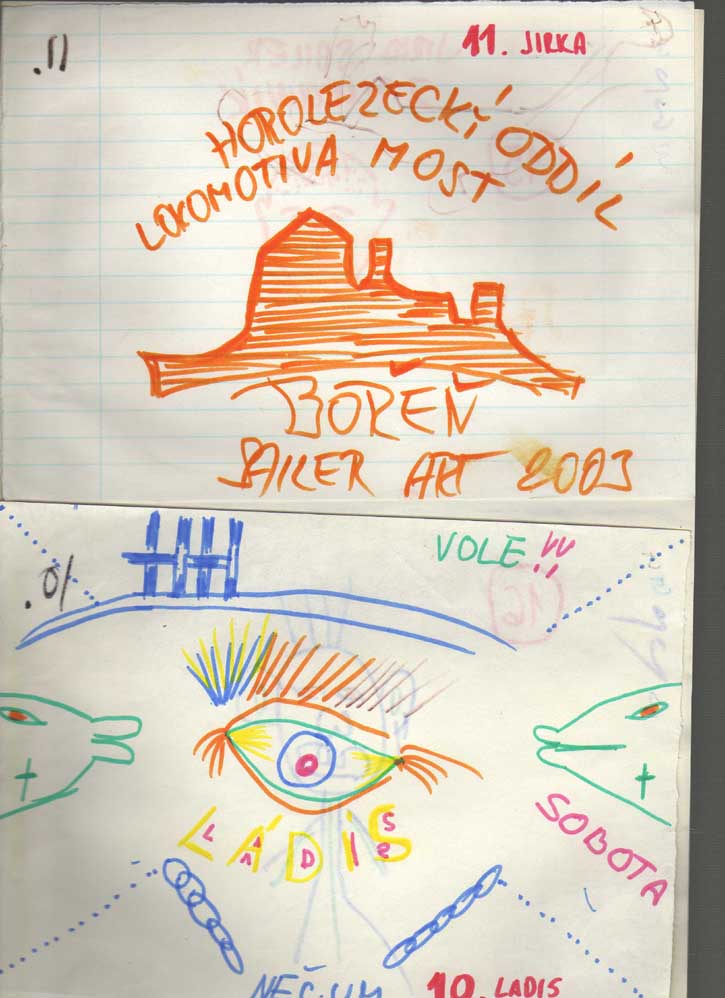 11.
11. JIRKA
HOROLEZECKÝ ODDÍL
LOKOMOTIVA MOST
BOŘEŇ
SAILER ART 2003
10.
VOLE!!
LÁDIS
SOBOTA
10. LADIS